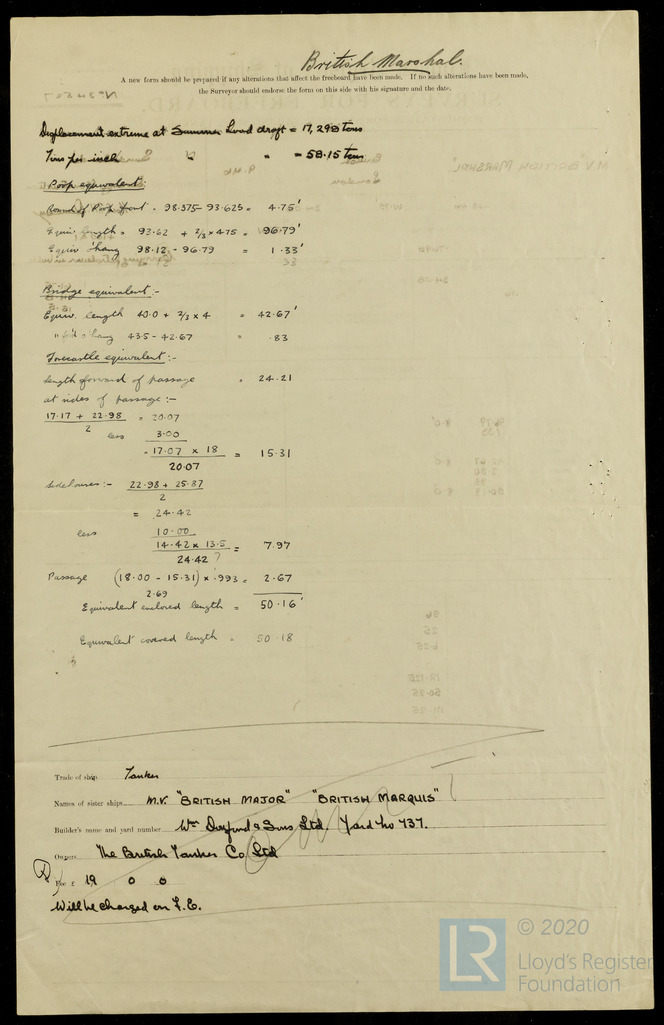 British Marshal.
A new form should be prepared if any alterations that affect the freeboard have been made. If no such alterations have been made,
the Surveyor should endorse the form on this side with his signature and the date.
Displacement extreme at Summer Load draft = 17,298 tons
Tons per inch " " = 58.15 tons
Poop equivalent:
Round of Poop front = 98.375 - 93.625 = 4.75'
Equiv. length = 93.62 + 2/3 x 4.75 = 96.79'
Equiv o'hang 98.12 - 96.79 = 1.33'
Bridge equivalent:-
Equiv. length 40.0 + 2/3 x 4 = 42.67'
o'hang 43.5 - 42.67 = .83
Forecastle equivalent:-
Length forward of passage = 24.21
at sides of passage:-
17.17 + 22.98 = 20.07
2
less 3.00
= 17.07 x 18 = 15.31
20.07
Sidehouses:- 22.98 + 25.87
2
= 24.42
less 10.00
14.42 x 13.5 = 7.97
24.42
Passage (18.00 - 15.31) x .993 = 2.67
2.69
Equivalent enclosed length = 50.16'
Equivalent covered length = 50.18
Trade of ship Tanker
Names of sister ships M.V. "BRITISH MAJOR" "BRITISH MARQUIS"
Builder's name and yard number Wm Doxford & Sons Ltd. Yard No 737.
Owners The British Tanker Co Ltd
Fee £ 19 0 0
Will be charged on F.E.
© 2020
LR
Lloyd's Register
Foundation